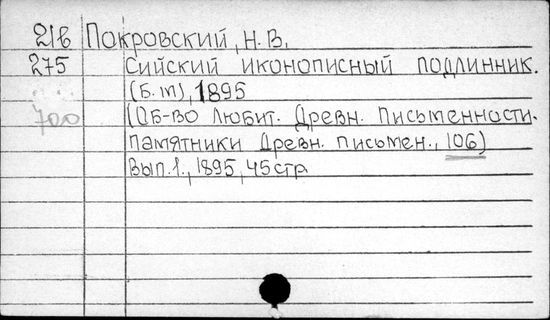 21в Покровский, Н. В.
275 Сийский иконописный подлинник.
(Б. м), 1895
700 (Об-во любит. древн. письменности.
Памятники древн. письмен., 106)
Вып. 1., 1895, 45 стр